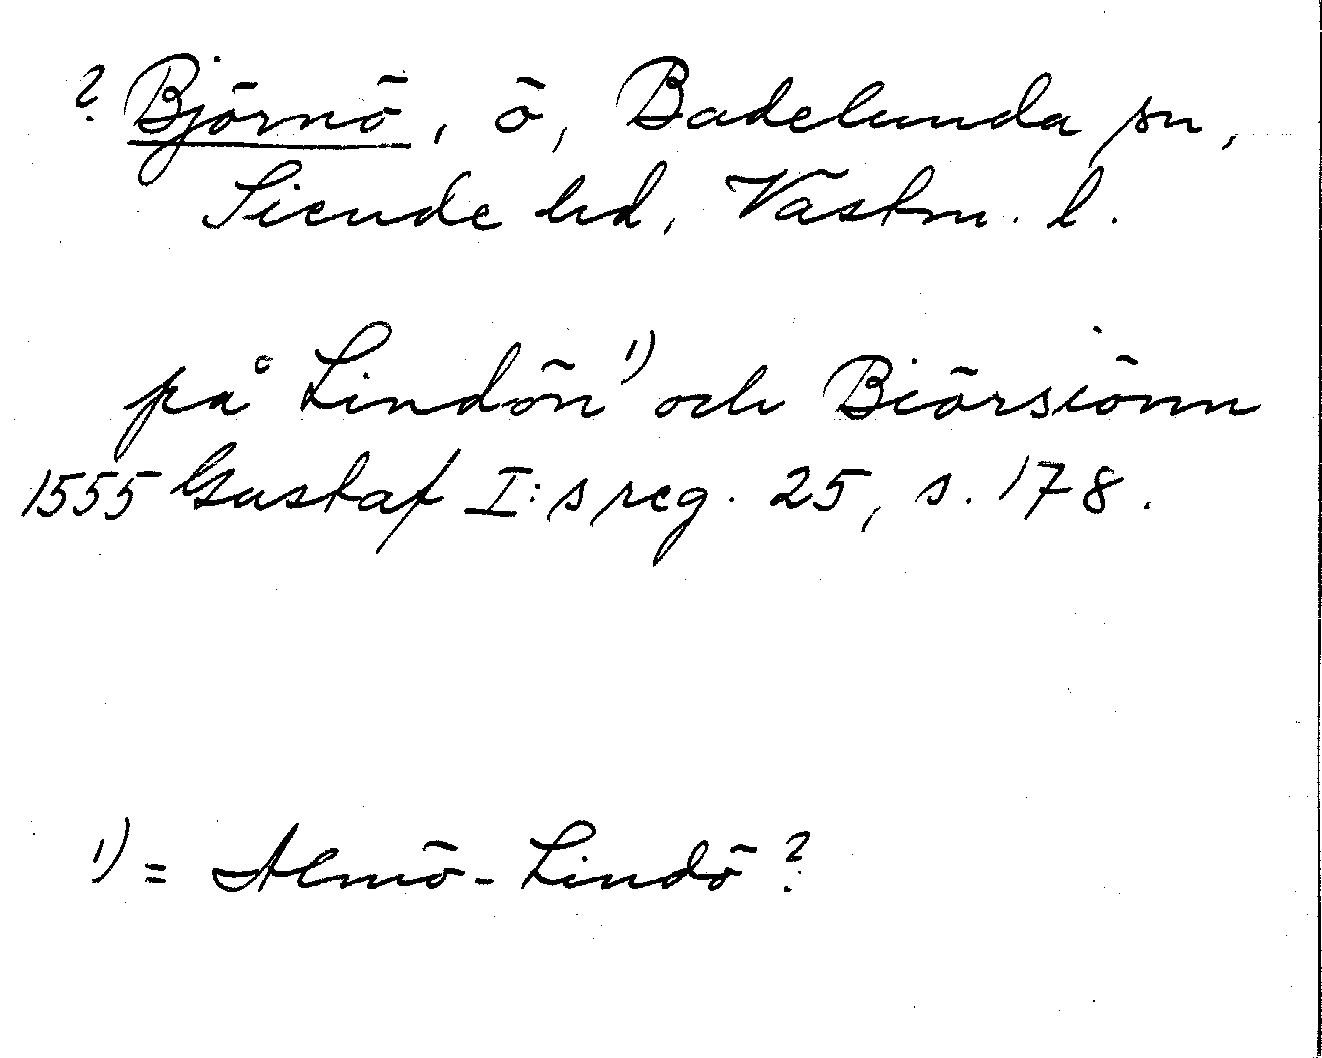 ? Björnö, ö, Badelunda sn,
Siende hd, Västm. l.
på Lindön ¹) och Biörsiönn
1555 Gustaf I:s reg. 25, s. 178.
¹) = Almö-Lindö ?